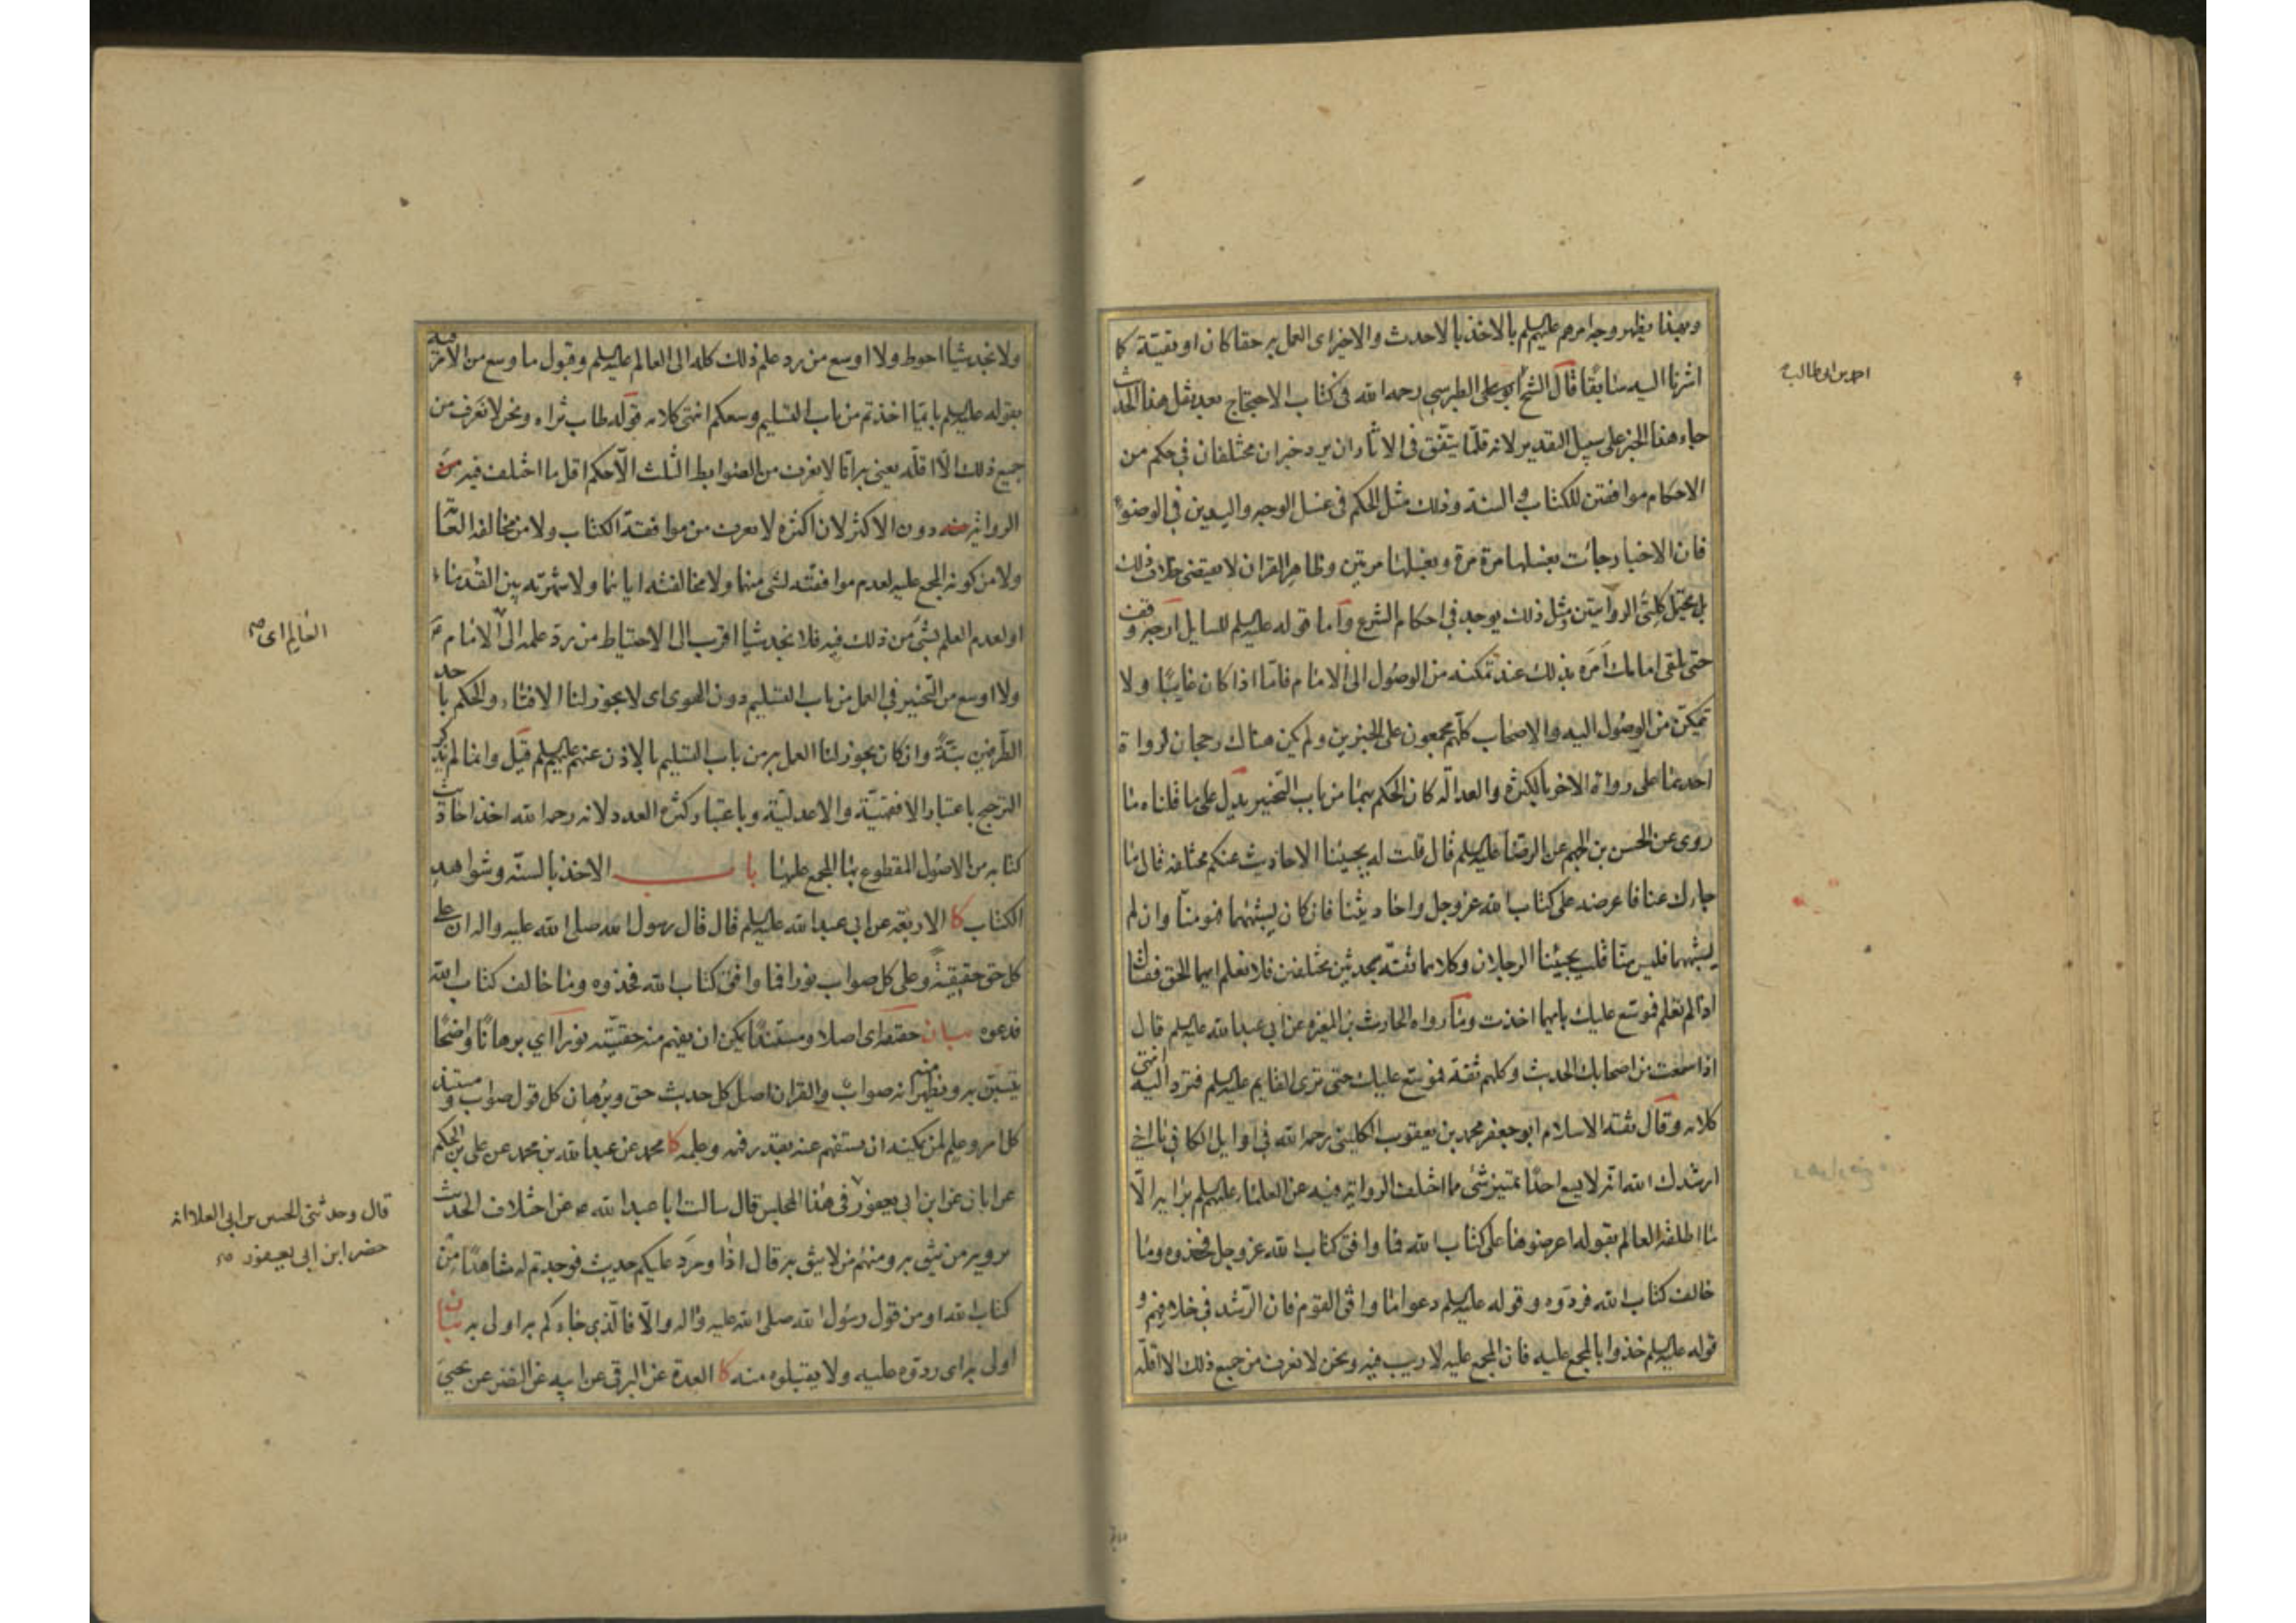 وبهذا يظهر وجه امرهم عليهم السلم بالاخذ بالاحدث والاخير اى العمل به حقا كان او تقيّة كا
اشرنا اليه سابقا قال الشيخ ابو على الطبرسى رحمه الله فى كتاب الاحتجاج بعد نقل هذا الحديث
جاء هذا الخبر على سبيل التقدير لانه قلّما يتّفق فى الاثار ان يرد خبران مختلفان فى حكم من
الاحكام موافقين للكتاب والسنة وذلك مثل الحكم فى غسل الوجه واليدين فى الوضوء
فان الاخبار جائت بغسلها مرة مرة وبغسلها مرتين وظاهر القران لا يقتضى خلاف ذلك
بل يحتمل كلتى الروايتين ومثل ذلك يوجد فى احكام الشرع وامّا قوله عليه السلم للسايل ارجه وقف
حتى تلقى امامك امَرَه بذلك عند تمكنه من الوصول الى الامام فامّا اذا كان غايبًا ولا
تمكّن من الوصول اليه والاصحاب كلّهم مجمعون على الخبرين ولم يكن هناك رجحان لرواة
احدهما على رواة الاخر بالكثرة والعدالة كان الحكم بهما من باب التخيير يدل على ما قلناه ما
روى عن الحسن بن الجهم عن الرضا عليه السلم قال قلت له يجيئنا الاحاديث عنكم مختلفه قال ما
جاءك عنا فاعرضه على كتاب الله عزوجل واحاديثنا فان كان يشبههما فهو منّا وان لم
يشبههما فليس منّا قلت يجيئنا الرجلان وكلاهما ثقة بحديثين مختلفين فلا نعلم ايهما الحق فقال
اذا لم تعلم فموسّع عليك بايهما اخذت وما رواه الحارث بن المغيرة عن ابى عبد الله عليه السلم قال
اذا سمعت من اصحابك الحديث وكلهم ثقة فموسّع عليك حتى ترى القايم عليه السلم فترد اليه انتهى
كلامه وقال ثقة الاسلام ابو جعفر محمد بن يعقوب الكلينى رحمه الله فى اوايل الكافى يا اخى
ارشدك الله انه لا يسع احدًا تمييز شئ مما اختلف الرواية فيه عن العلماء عليهم السلم برايه الّا
ما اطلقه العالم بقوله اعرضوها على كتاب الله فما وافق كتاب الله عزوجل فخذوه وما
خالف كتاب الله فردّوه وقوله عليه السلم دعوا ما وافق القوم فان الرّشد فى خلافهم و
قوله عليه السلم خذوا بالمجمع عليه فان المجمع عليه لا ريب فيه ونحن لا نعرف من جميع ذلك الا اقلّه
احمد بن ابى طالب
ولا نجد شيئا احوط ولا اوسع من رد علم ذلك كله الى العالم عليه السلم وقبول ما وسع من الامر فيه
بقوله عليه السلم بايّما اخذتم من باب التسليم وسعكم انتهى كلامه قوله طاب ثراه ونحن لا نعرف من
جميع ذلك الّا اقلّه يعنى به انّا لا نعرف من الضوابط الثلث الّا حكم اقل ما اختلف فيه من
الرواية دون الاكثر لان اكثره لا نعرف من موافقة الكتاب ولا من مخالفة العامّة
ولا من كونه المجمع عليه لعدم موافقته لشئ منها ولا مخالفته اياها ولا شهرته بين القدماء
او لعدم العلم بشئ من ذلك فيه فلا نجد شيئا اقرب الى الاحتياط من ردّ علمه الى الامام ع
ولا اوسع من التخيير فى العمل من باب التسليم دون الهوى اى لا يجوز لنا الافتاء والحكم باحد
الطرفين بتّةً وان كان يجوز لنا العمل به من باب التسليم بالاذن عنهم عليهم السلم قيل وانما لم يذكر
الترجيح باعتبار الافقهيّة والاعدليّة وباعتبار كثرة العدد لانه رحمه الله اخذ احاديث
كتابه من الاصول المقطوع بها المجمع عليها باب الاخذ بالسنّة وشواهد
الكتاب كا الاربعة عن ابى عبد الله عليه السلم قال قال رسول الله صلى الله عليه واله ان على
كل حق حقيقةً وعلى كل صواب نورا فما وافق كتاب الله فخذوه وما خالف كتاب الله
فدعوه بيان حقيقة اى اصلا ومستندًا يمكن ان يفهم منه حقيّته نورا اى برهانًا واضحًا
يتبيّن به ويظهر منه انه صواب والقران اصل كل حديث حق وبرهان كل قول صواب ومستند
كل امر وعلم لمن يمكنه ان يستفهم عنه بقدر فهمه وعلمه كا محمد عن عبد الله بن محمد عن على بن الحكم
عن ابان عن ابن ابى يعفور فى هذا المجلس قال سالت ابا عبد الله ع عن اختلاف الحديث
يرويه من نثق به ومنهم من لا نثق به قال اذا ورد عليكم حديث فوجدتم له شاهدًا من
كتاب الله او من قول رسول الله صلى الله عليه واله والّا فالّذى جاءكم به اولى به بيان
اولى به اى ردّوه عليه ولا يقبلوه منه كا العدة عن البرقى عن ابيه عن النضر عن يحيى
العالم اى صح
قال وحدثنى الحسين بن ابى العلا انه
حضر ابن ابى يعفور صح